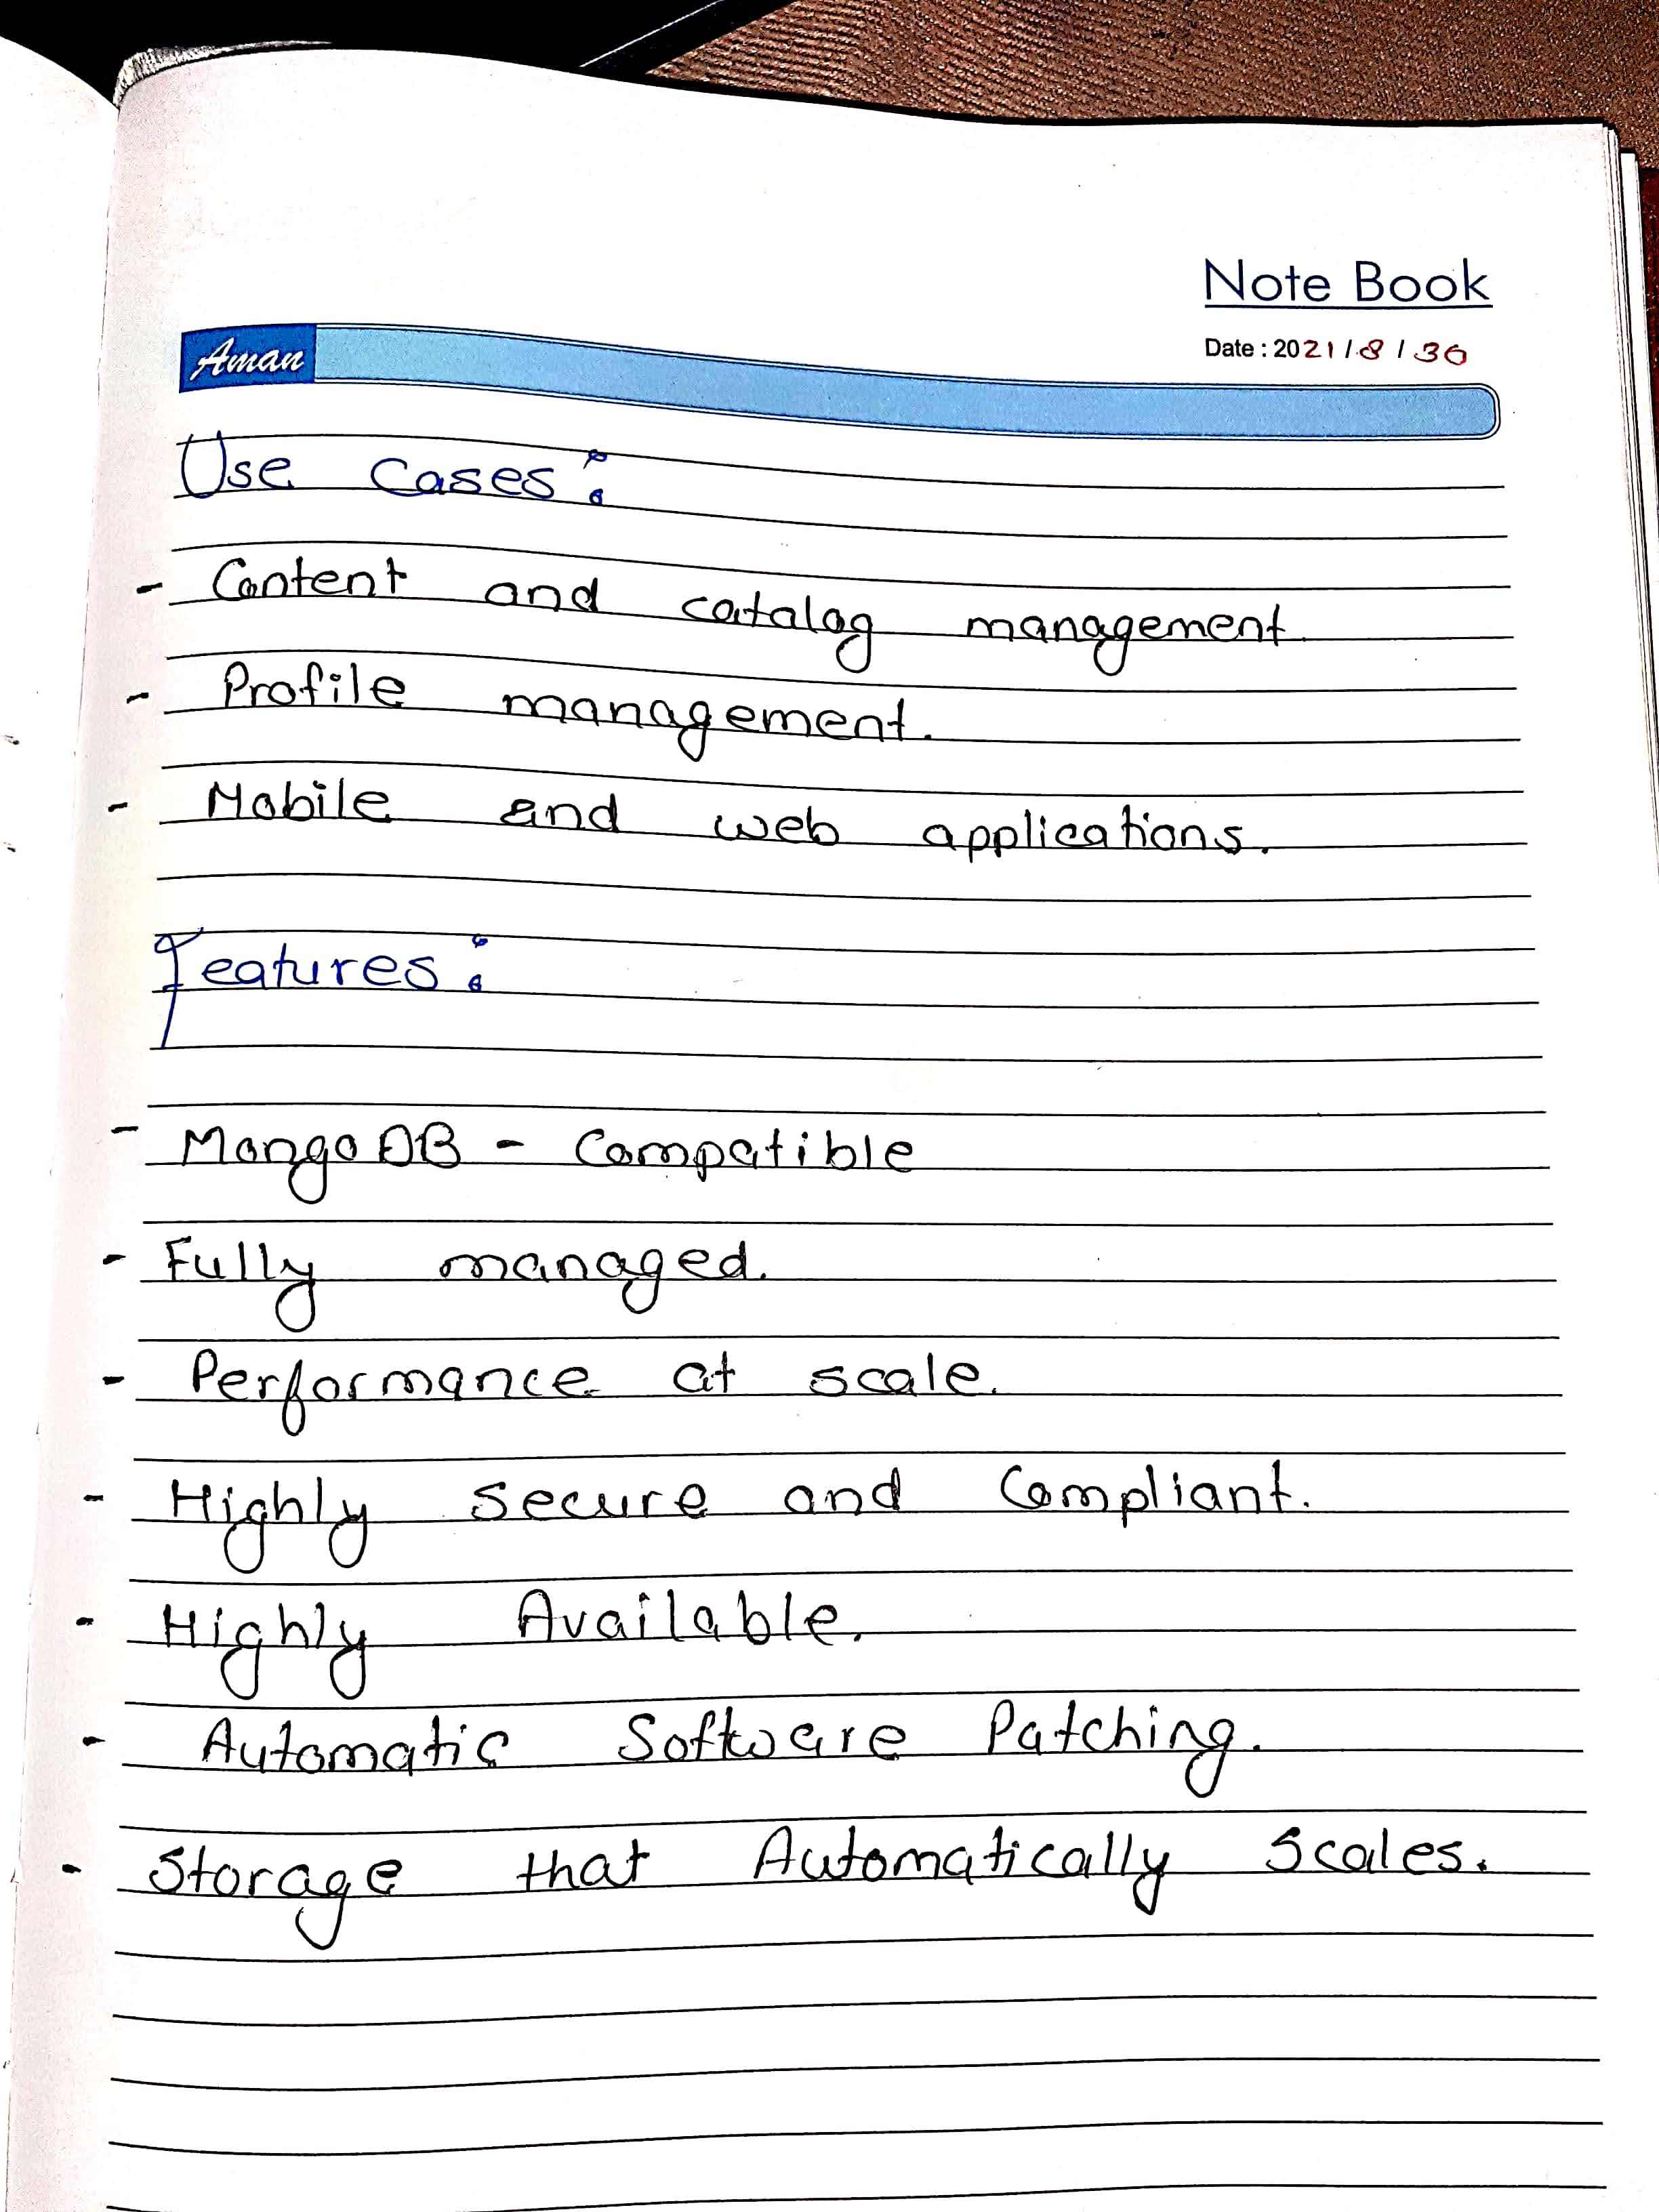 Note Book
Date : 2021 / 8 / 30
Aman
Use cases :
- Content and catalog management.
- Profile management.
- Mobile and web applications.
Features :
- MongoDB - Compatible
- Fully managed.
- Performance at scale.
- Highly secure and Compliant.
- Highly Available.
- Automatic Software Patching.
- Storage that Automatically Scales.